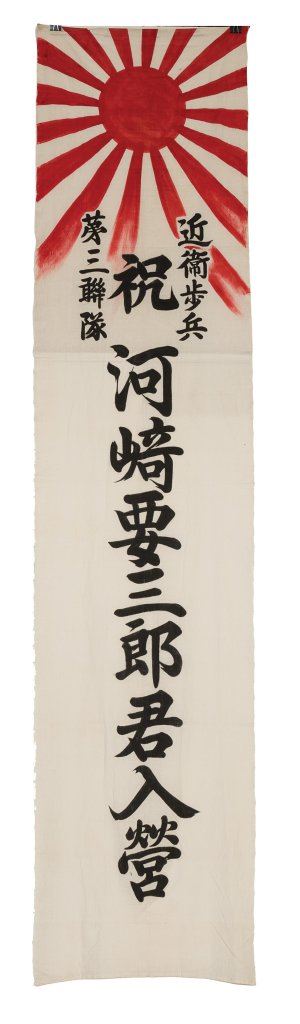 近衞歩兵
第三聯隊
祝河﨑要三郎君入營